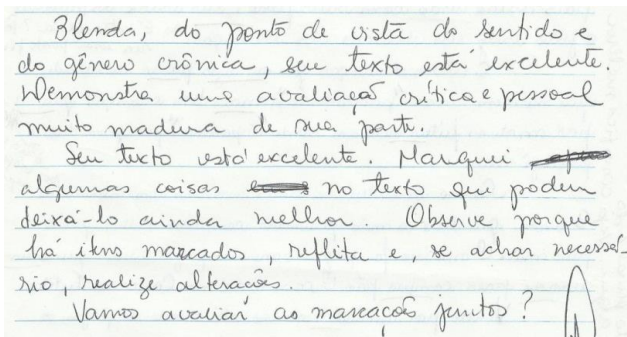 Blenda, do ponto de vista do sentido e
do gênero crônica, seu texto está excelente.
Demonstra uma avaliação crítica e pessoal
muito madura de sua parte.
Seu texto está excelente. Marquei
algumas coisas no texto que podem
deixá-lo ainda melhor. Observe porque
há itens marcados, reflita e, se achar necessá-
rio, realize alterações.
Vamos avaliar as marcações juntos?